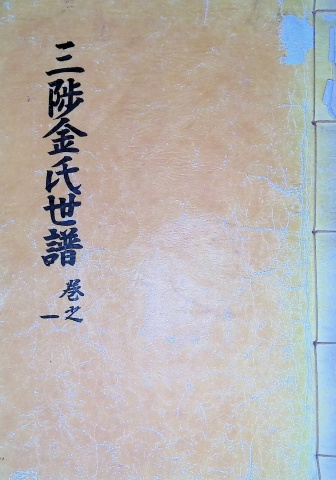 三陟金氏世譜
巻之
一